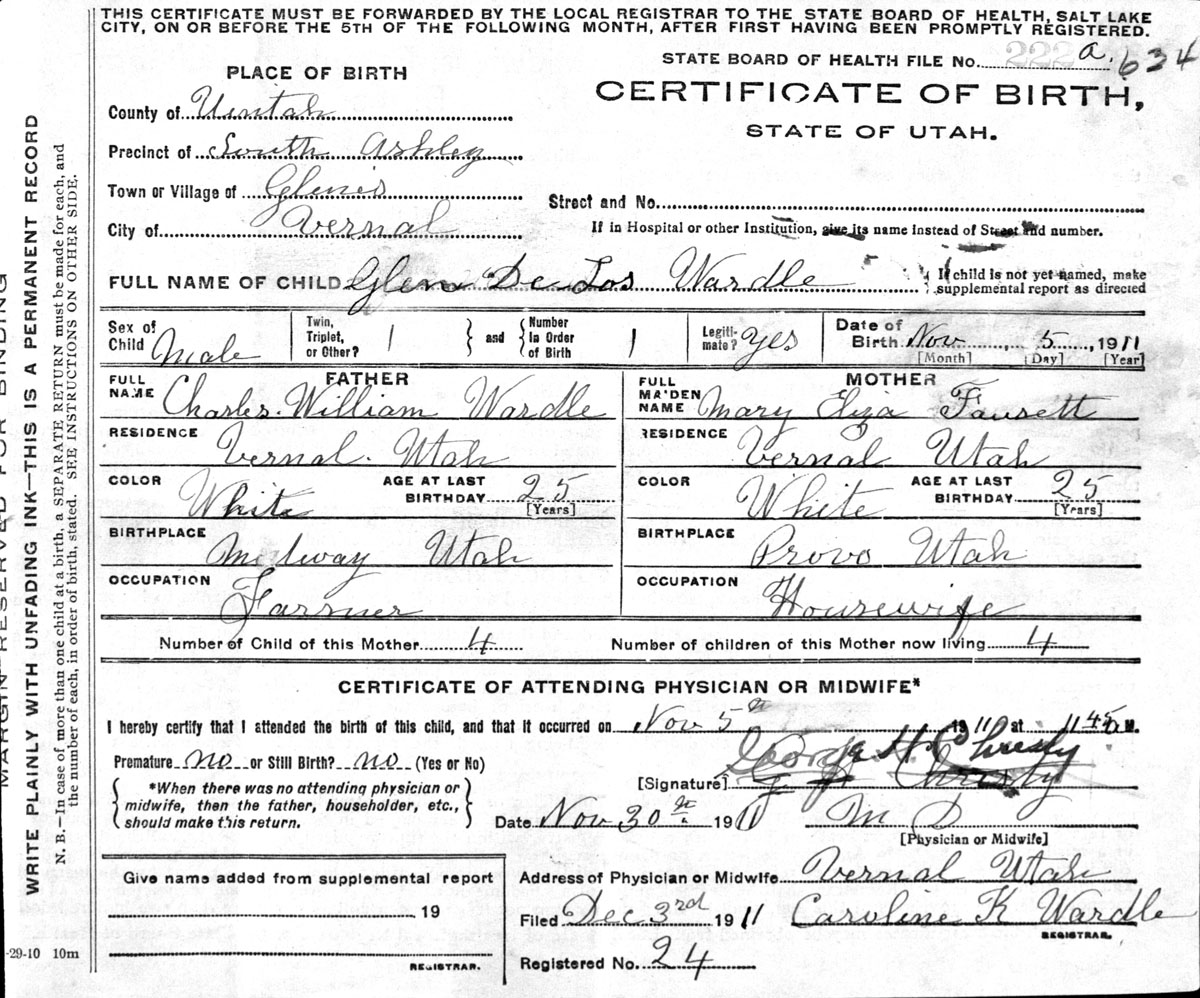 THIS CERTIFICATE MUST BE FORWARDED BY THE LOCAL REGISTRAR TO THE STATE BOARD OF HEALTH, SALT LAKE
CITY, ON OR BEFORE THE 5TH OF THE FOLLOWING MONTH, AFTER FIRST HAVING BEEN PROMPTLY REGISTERED.
STATE BOARD OF HEALTH FILE No. 222 a, 634
PLACE OF BIRTH
CERTIFICATE OF BIRTH,
STATE OF UTAH.
County of Uintah
Precinct of South Ashley
Town or Village of
Street and No.
City of Vernal
If in Hospital or other Institution, give its name instead of Street and number.
FULL NAME OF CHILD Glen De Los Wardle
If child is not yet named, make
supplemental report as directed
Sex of Child Male
Twin, Triplet, or Other? 1 and Number in Order of Birth 1
Legiti-mate? Yes
Date of Birth Nov 5, 1911
[Month] [Day] [Year]
FATHER
FULL NAME Charles William Wardle
RESIDENCE Vernal Utah
COLOR White AGE AT LAST BIRTHDAY 25 [Years]
BIRTHPLACE Midway Utah
OCCUPATION Farmer
MOTHER
FULL MAIDEN NAME Mary Eliza Fausett
RESIDENCE Vernal Utah
COLOR White AGE AT LAST BIRTHDAY 25 [Years]
BIRTHPLACE Provo Utah
OCCUPATION Housewife
Number of Child of this Mother 4 Number of children of this Mother now living 4
CERTIFICATE OF ATTENDING PHYSICIAN OR MIDWIFE*
I hereby certify that I attended the birth of this child, and that it occurred on Nov 5th 1911 at 1145 M.
Premature no or Still Birth? no (Yes or No)
*When there was no attending physician or
midwife, then the father, householder, etc.,
should make this return.
[Signature] George H Christy
Date Nov 30th 1911 M D
[Physician or Midwife]
Give name added from supplemental report
19
REGISTRAR.
Address of Physician or Midwife Vernal Utah
Filed Dec 3rd 1911 Caroline K Wardle
REGISTRAR.
Registered No. 24
-29-10 10m
MARGIN RESERVED FOR BINDING
WRITE PLAINLY WITH UNFADING INK—THIS IS A PERMANENT RECORD
N. B.—In case of more than one child at a birth, a SEPARATE RETURN must be made for each, and
the number of each, in order of birth, stated. SEE INSTRUCTIONS ON OTHER SIDE.